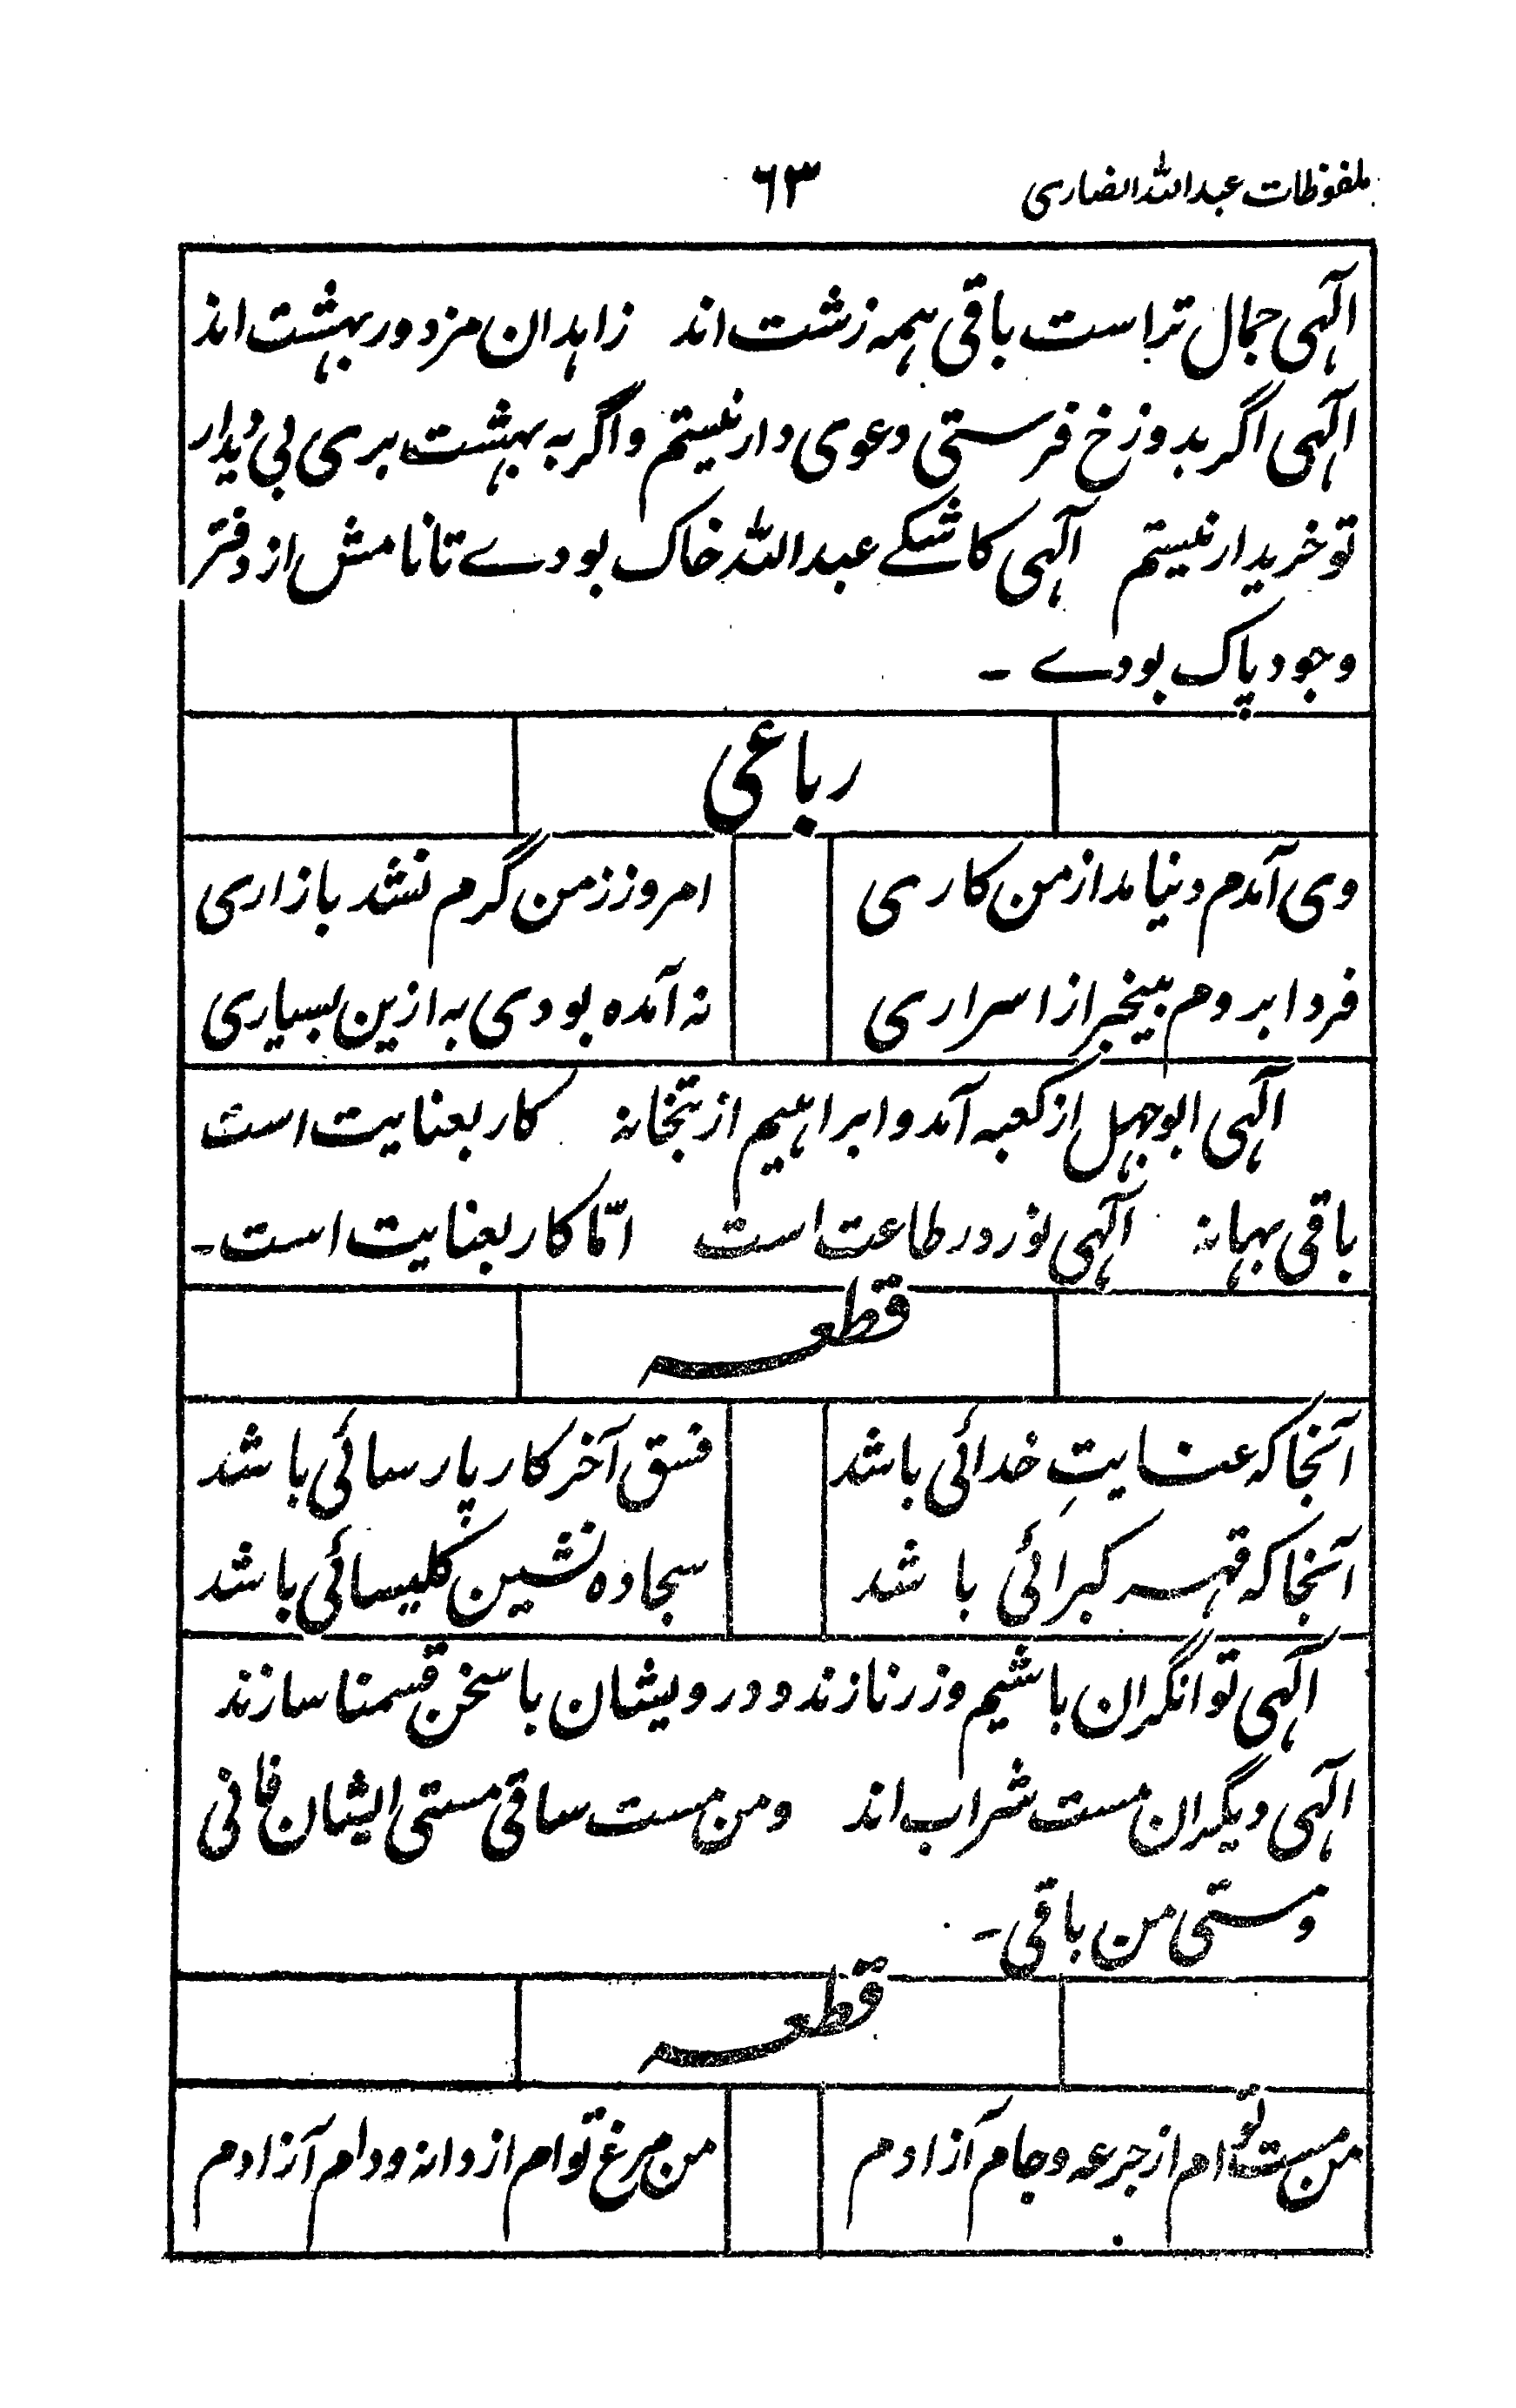 ملفوظات عبداللہ انصاری ٦٣
الٓہی جمال تراست باقی ہمہ زشت اند زاہدان مزدور بہشت اند
الٓہی اگر بدوزخ فرستی دعوی دار نیستم واگر بہ بہشت بری بی دیدار
تو خریدار نیستم الٓہی کاشکے عبداللہ خاک بودے تا نامش از دفتر
وجود پاک بودے ۔
رباعی
دی آمدم و نیامد از من کاری امروز ز من گرم نشد بازاری
فردا بروم بیخبر از اسراری نہ آمدہ بودی بہ ازین بسیاری
الٓہی ابوجہل از کعبہ آمد و ابراہیم از بتخانہ کار بعنایت است
باقی بہانہ الٓہی نور در طاعت است امّا کار بعنایت است۔
قطعہ
آنجا کہ عنایتِ خدائی باشد فسق آخر کار پارسائی باشد
آنجا کہ قہر کبرائی باشد سجادہ نشین کلیسائی باشد
الٓہی توانگران باشیم وزر نازند و درویشان با سخن قسمنا سازند
الٓہی دیگران مست شراب اند ومن مست ساقی مستی ایشان فانی
ومستی من باقی۔
قطعہ
من مست تو ام از جرعہ وجام آزادم من مرغ توام از دانہ ودام آزادم